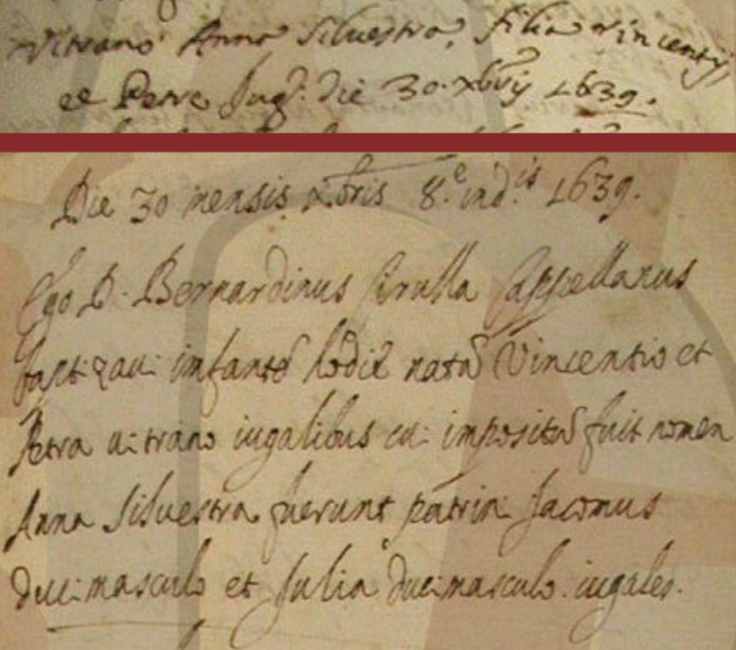 Vitrano Anna Silvestra, filia Vincentij
et Petre Jug: Die 30. xbris 1639.
Die 30 mensis xbris 8.e ind.is 1639.
Ego D. Bernardinus Cappellanus
baptizavi infantẽ hodiè natã Vincentio et
Petra vitrano iugalibus cui impositũ fuit nomen
Anna Silvestra, fuerunt patrini Jacomus
Ducimasculo et Julia Ducimasculo iugales.